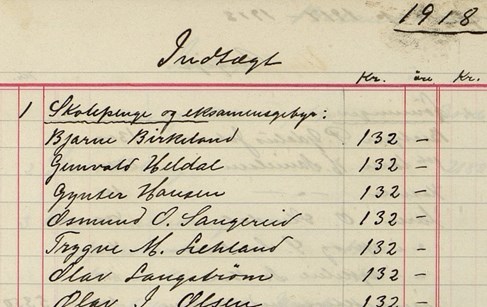 1918
Indtægt
Kr. øre Kr.
1 Skolepenge og eksamensgebyr:
Bjarne Birkeland 132 –
Gunvald Heldal 132 –
Gynter Hansen 132 –
Osmund O. 132 –
Trygve M. 132 –
Olav Langström 132 –
Olav J. Olsen 132 –